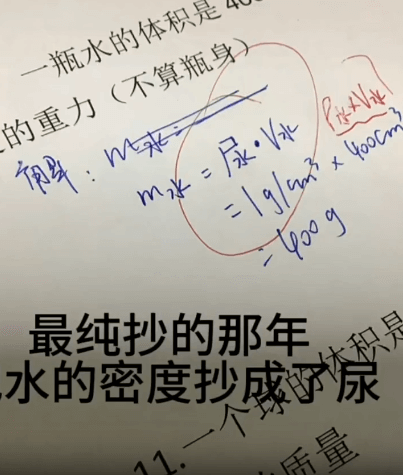 一瓶水的体积是 400
的重力（不算瓶身）
解：m水=
ρ水×V水
m水 = 尿·V水
= 1g/cm³ × 400cm³
= 400g
最纯抄的那年
水的密度抄成了尿
11. 一个球的体积是
质量